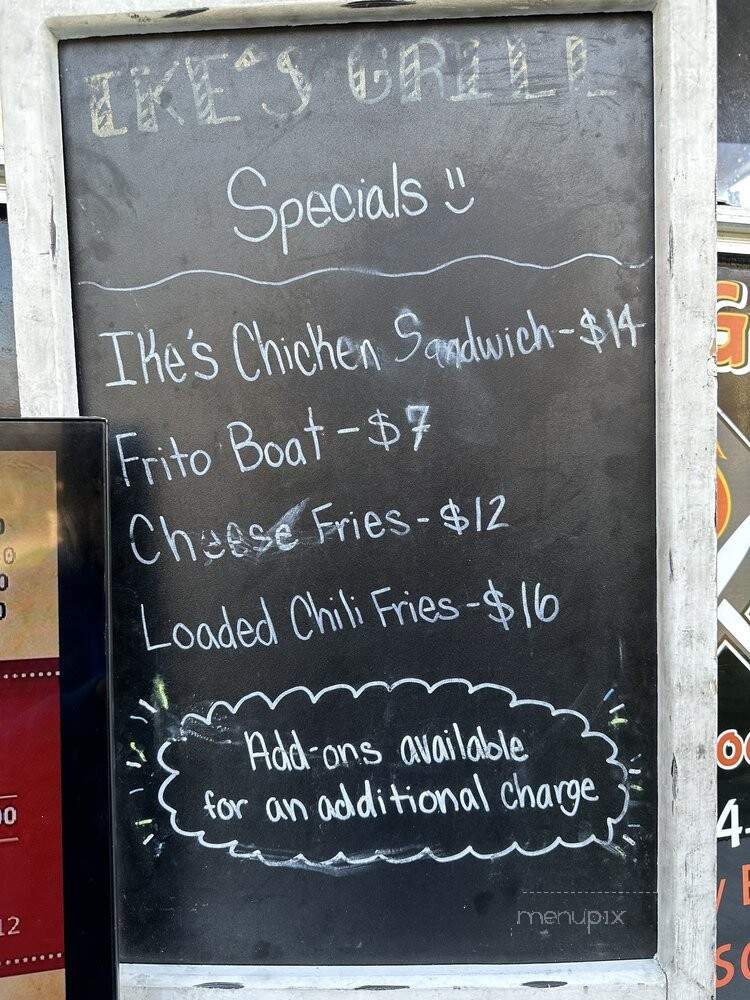 IKE'S GRILL
Specials
Ike's Chicken Sandwich-$14
Frito Boat-$7
Cheese Fries-$12
Loaded Chili Fries-$16
Add-ons available
for an additional charge
menupix